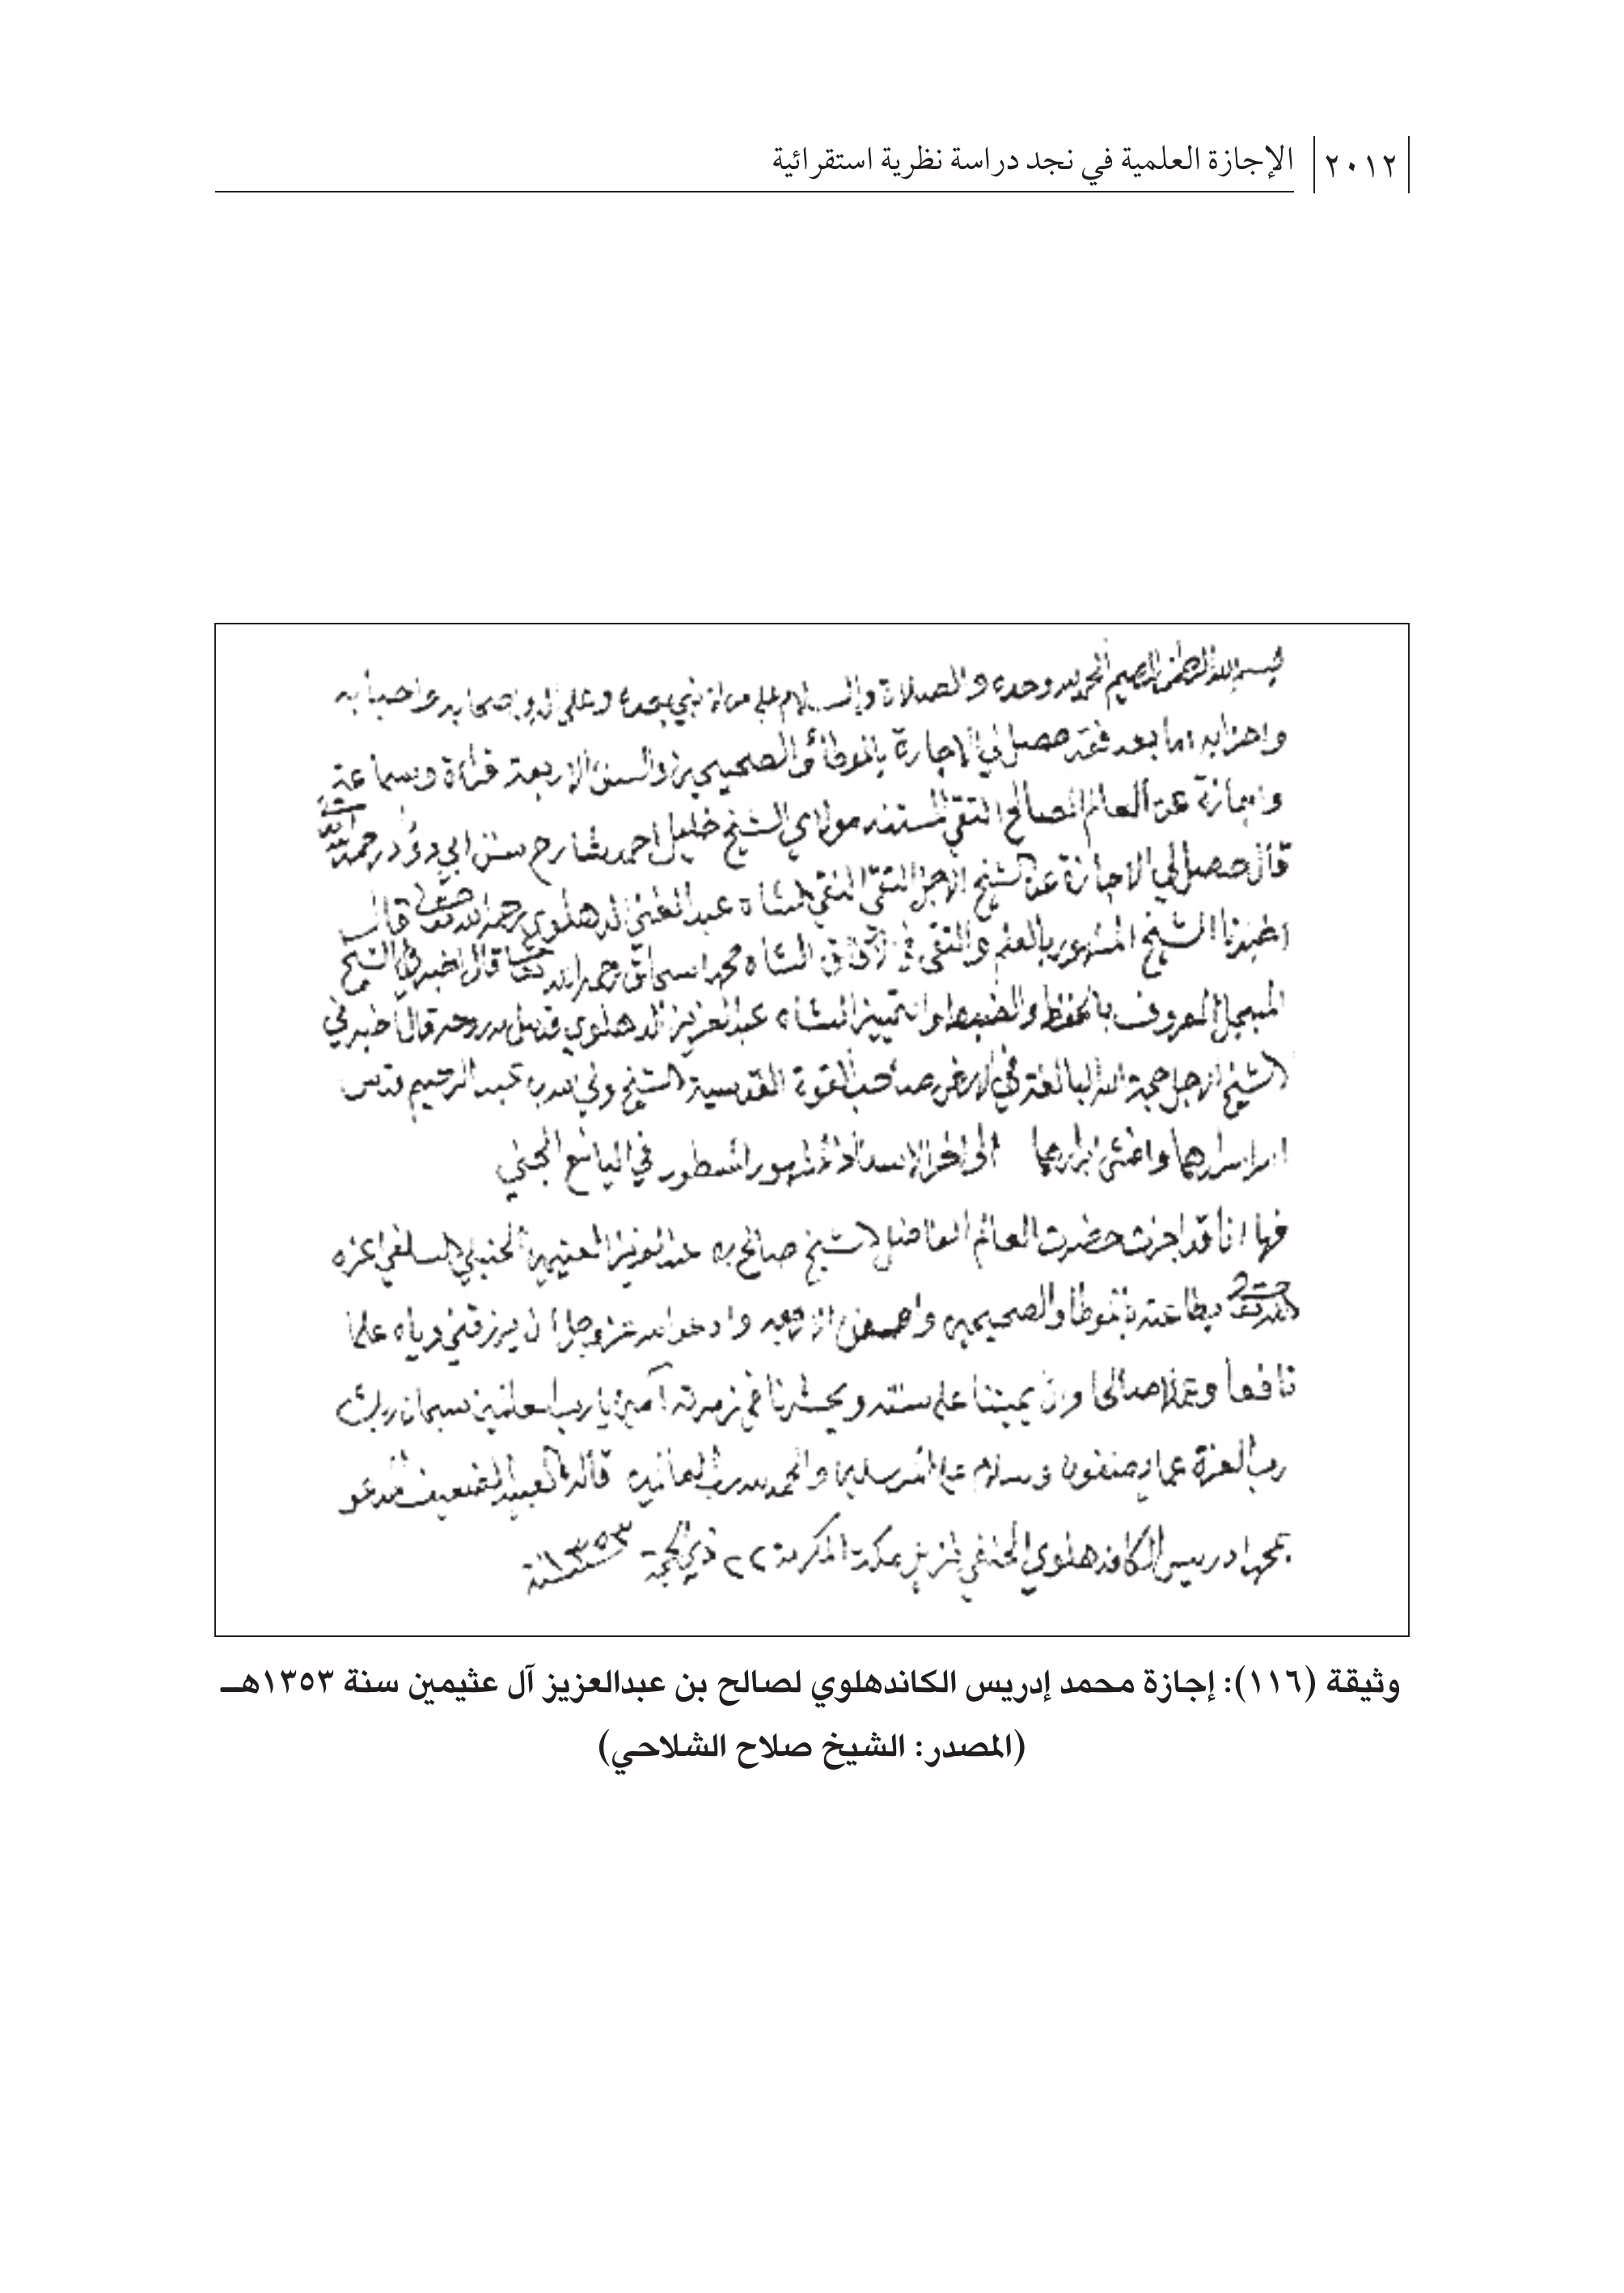 ٢٠١٢ الإجازة العلمية في نجد دراسة نظرية استقرائية
بسم الله الرحمن الرحيم الحمد لله وحده والصلاة والسلام على من لا نبي بعده وعلى اله واصحابه واحبابه
واحزابه اما بعد فقد حصل لي الاجازة بالموطأ والصحيحين والسنن الاربعة قراءة وسماعة
واجازة عن العالم الصالح التقي المستند مولاي الشيخ خليل احمد شارح سنن ابي داؤد رحمه الله
قال حصل لي الاجازة عن الشيخ الاجل التقي النقي الشاه عبد الغني الدهلوي رحمه الله تعالى قال
اخبرنا الشيخ المشهور بالعلم والتقى في الآفاق الشاه محمد اسحاق رحمه الله تعالى قال اخبرني الشيخ
المبجل المعروف بالحفظ والضبط والتمييز الشاه عبد العزيز الدهلوي قدس سره وحه قال اخبرني
الشيخ الاجل حجة الله البالغة في الارض صاحب القوة القدسية الشيخ ولي الله بن عبد الرحيم قدس
اسرارهما الى اخر الاسناد المشهور المسطور في اليانع الجني
فها انا قد اجزت حضرت العالم الفاضل الشيخ صالح بن عبد العزيز العثيمين الحنبلي السلفي اعزه
الله تعالى بطاعته بالموطا والصحيحين والسنن الاربعة وادعو الله عز وجل ان يرزقني واياه علما
نافعا وعملا صالحا وان يميتنا على سنته ويحشرنا في زمرته آمين يا رب العلمين سبحان ربك
رب العزة عما يصفون وسلام على المرسلين والحمد لله رب العالمين قاله العبد الضعيف المدعو
بمحمد ادريس الكاندهلوي الحنفي نزيل مكة المكرمة ٢٢ ذي الحجة سنة ١٣٥٣
وثيقة (١١٦): إجازة محمد إدريس الكاندهلوي لصالح بن عبدالعزيز آل عثيمين سنة ١٣٥٣هـ
(المصدر: الشيخ صلاح الشلاحي)